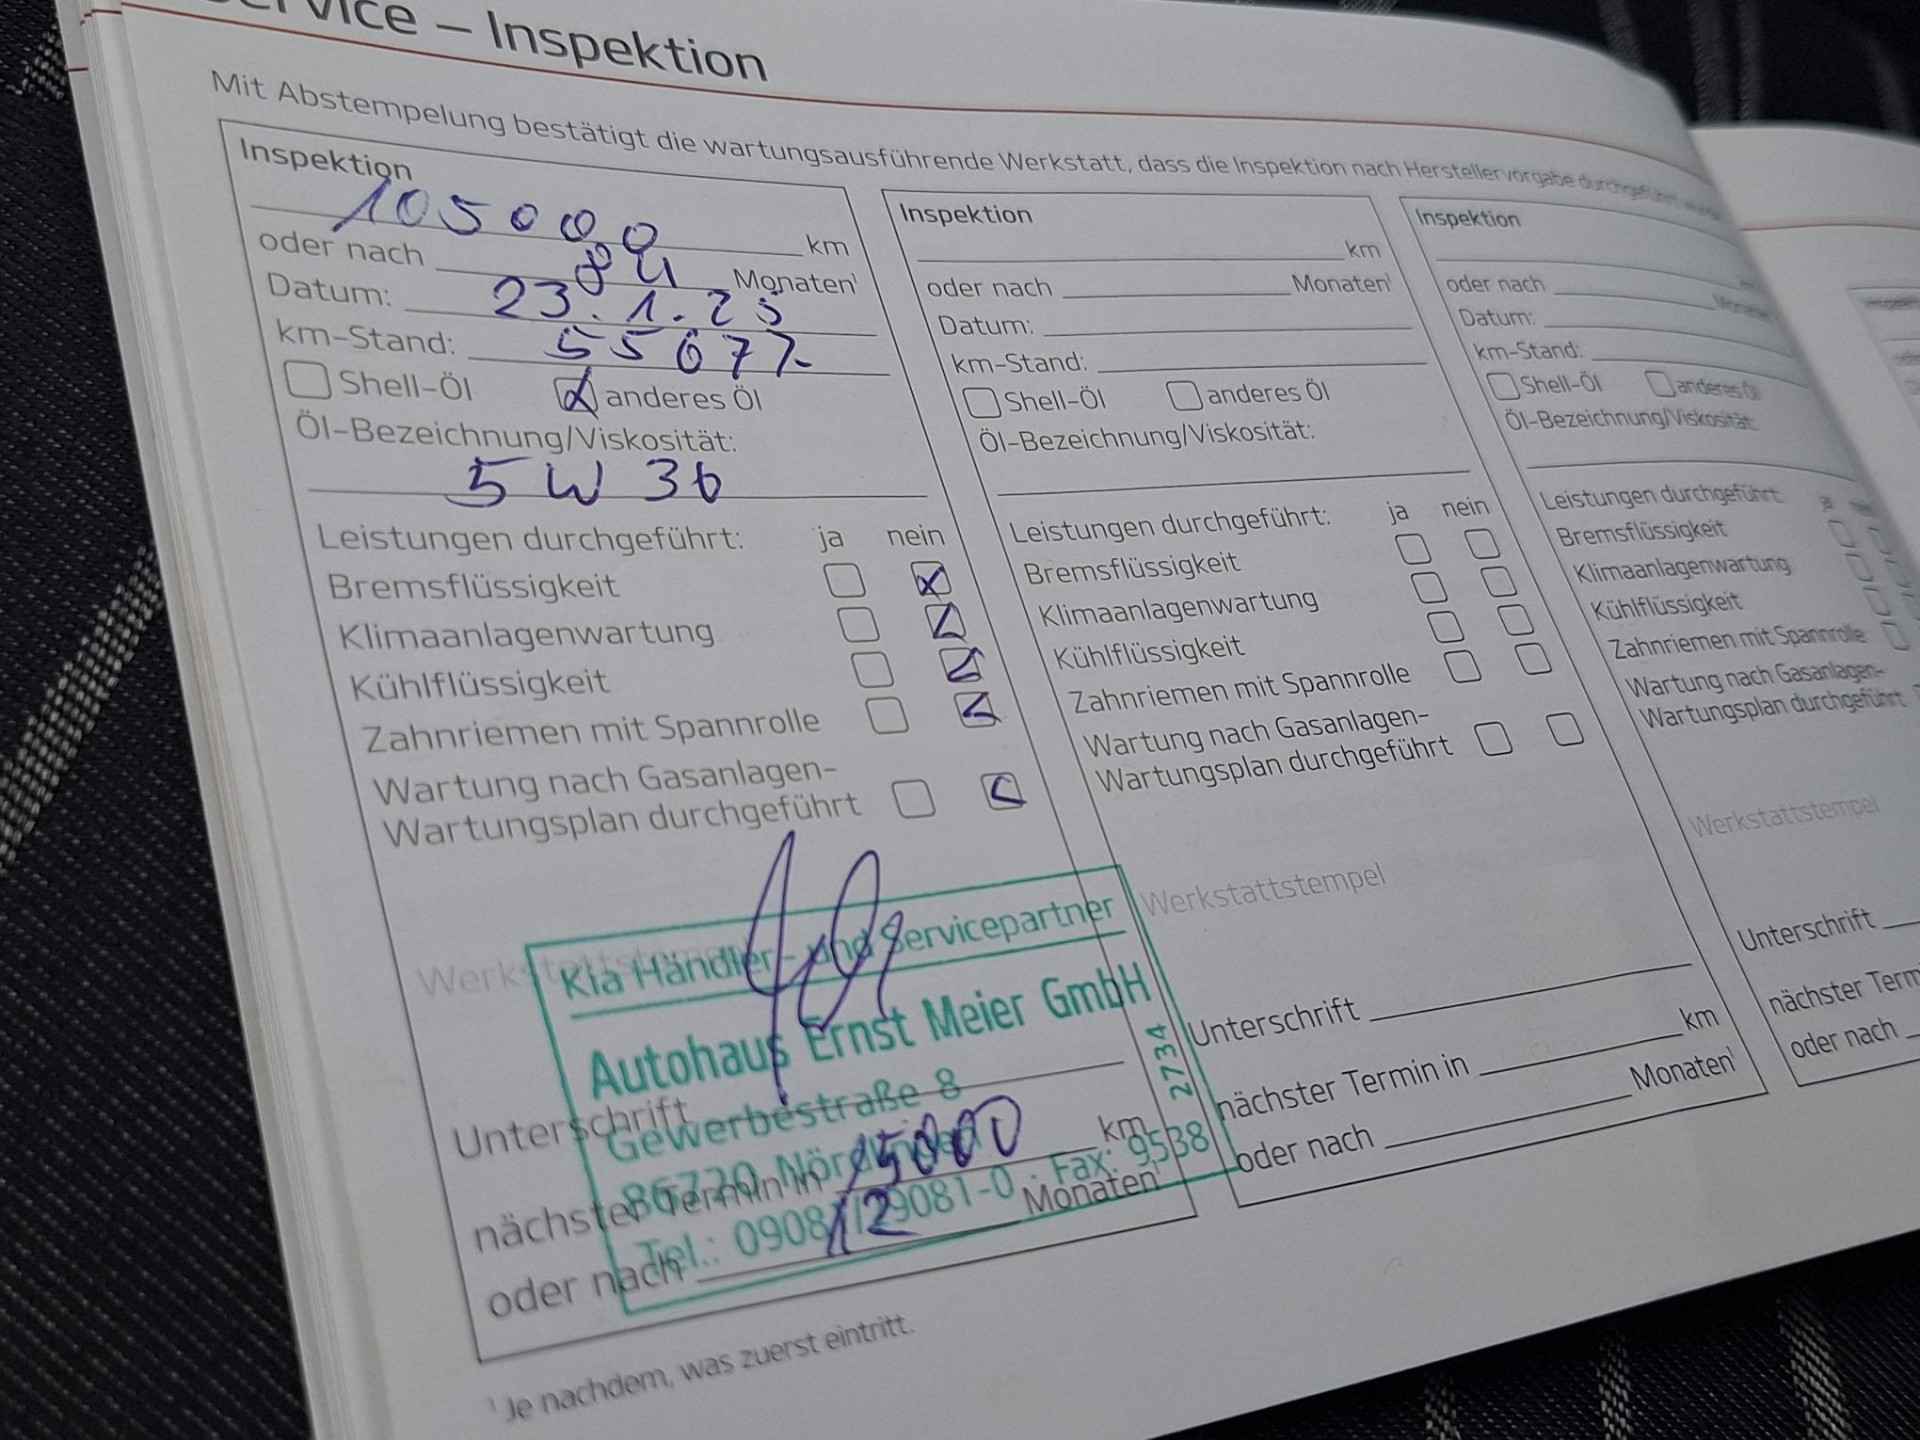 Service – Inspektion
Mit Abstempelung bestätigt die wartungsausführende Werkstatt, dass die Inspektion nach Herstellervorgabe durchgeführt
Inspektion
105000 km
oder nach 84 Monaten¹
Datum: 23.1.25
km-Stand: 55677
Shell-Öl anderes Öl
Öl-Bezeichnung/Viskosität:
5W30
Leistungen durchgeführt: ja nein
Bremsflüssigkeit
Klimaanlagenwartung
Kühlflüssigkeit
Zahnriemen mit Spannrolle
Wartung nach Gasanlagen-
Wartungsplan durchgeführt
Werkstattstempel
Kia Händler- und Servicepartner
Autohaus Ernst Meier GmbH
Gewerbestraße 8
86720 Nördlingen
Tel.: 09081/29081-0 · Fax: 9538
2734
Unterschrift
nächster Termin in 15000 km
oder nach 12 Monaten¹
Inspektion
km
oder nach Monaten¹
Datum:
km-Stand:
Shell-Öl anderes Öl
Öl-Bezeichnung/Viskosität:
Leistungen durchgeführt: ja nein
Bremsflüssigkeit
Klimaanlagenwartung
Kühlflüssigkeit
Zahnriemen mit Spannrolle
Wartung nach Gasanlagen-
Wartungsplan durchgeführt
Werkstattstempel
Unterschrift
nächster Termin in km
oder nach Monaten¹
Inspektion
oder nach Monaten
Datum:
km-Stand:
Shell-Öl anderes Öl
Öl-Bezeichnung/Viskosität:
Leistungen durchgeführt: ja
Bremsflüssigkeit
Klimaanlagenwartung
Kühlflüssigkeit
Zahnriemen mit Spannrolle
Wartung nach Gasanlagen-
Wartungsplan durchgeführt
Werkstattstempel
Unterschrift
nächster Term
oder nach
¹ Je nachdem, was zuerst eintritt.